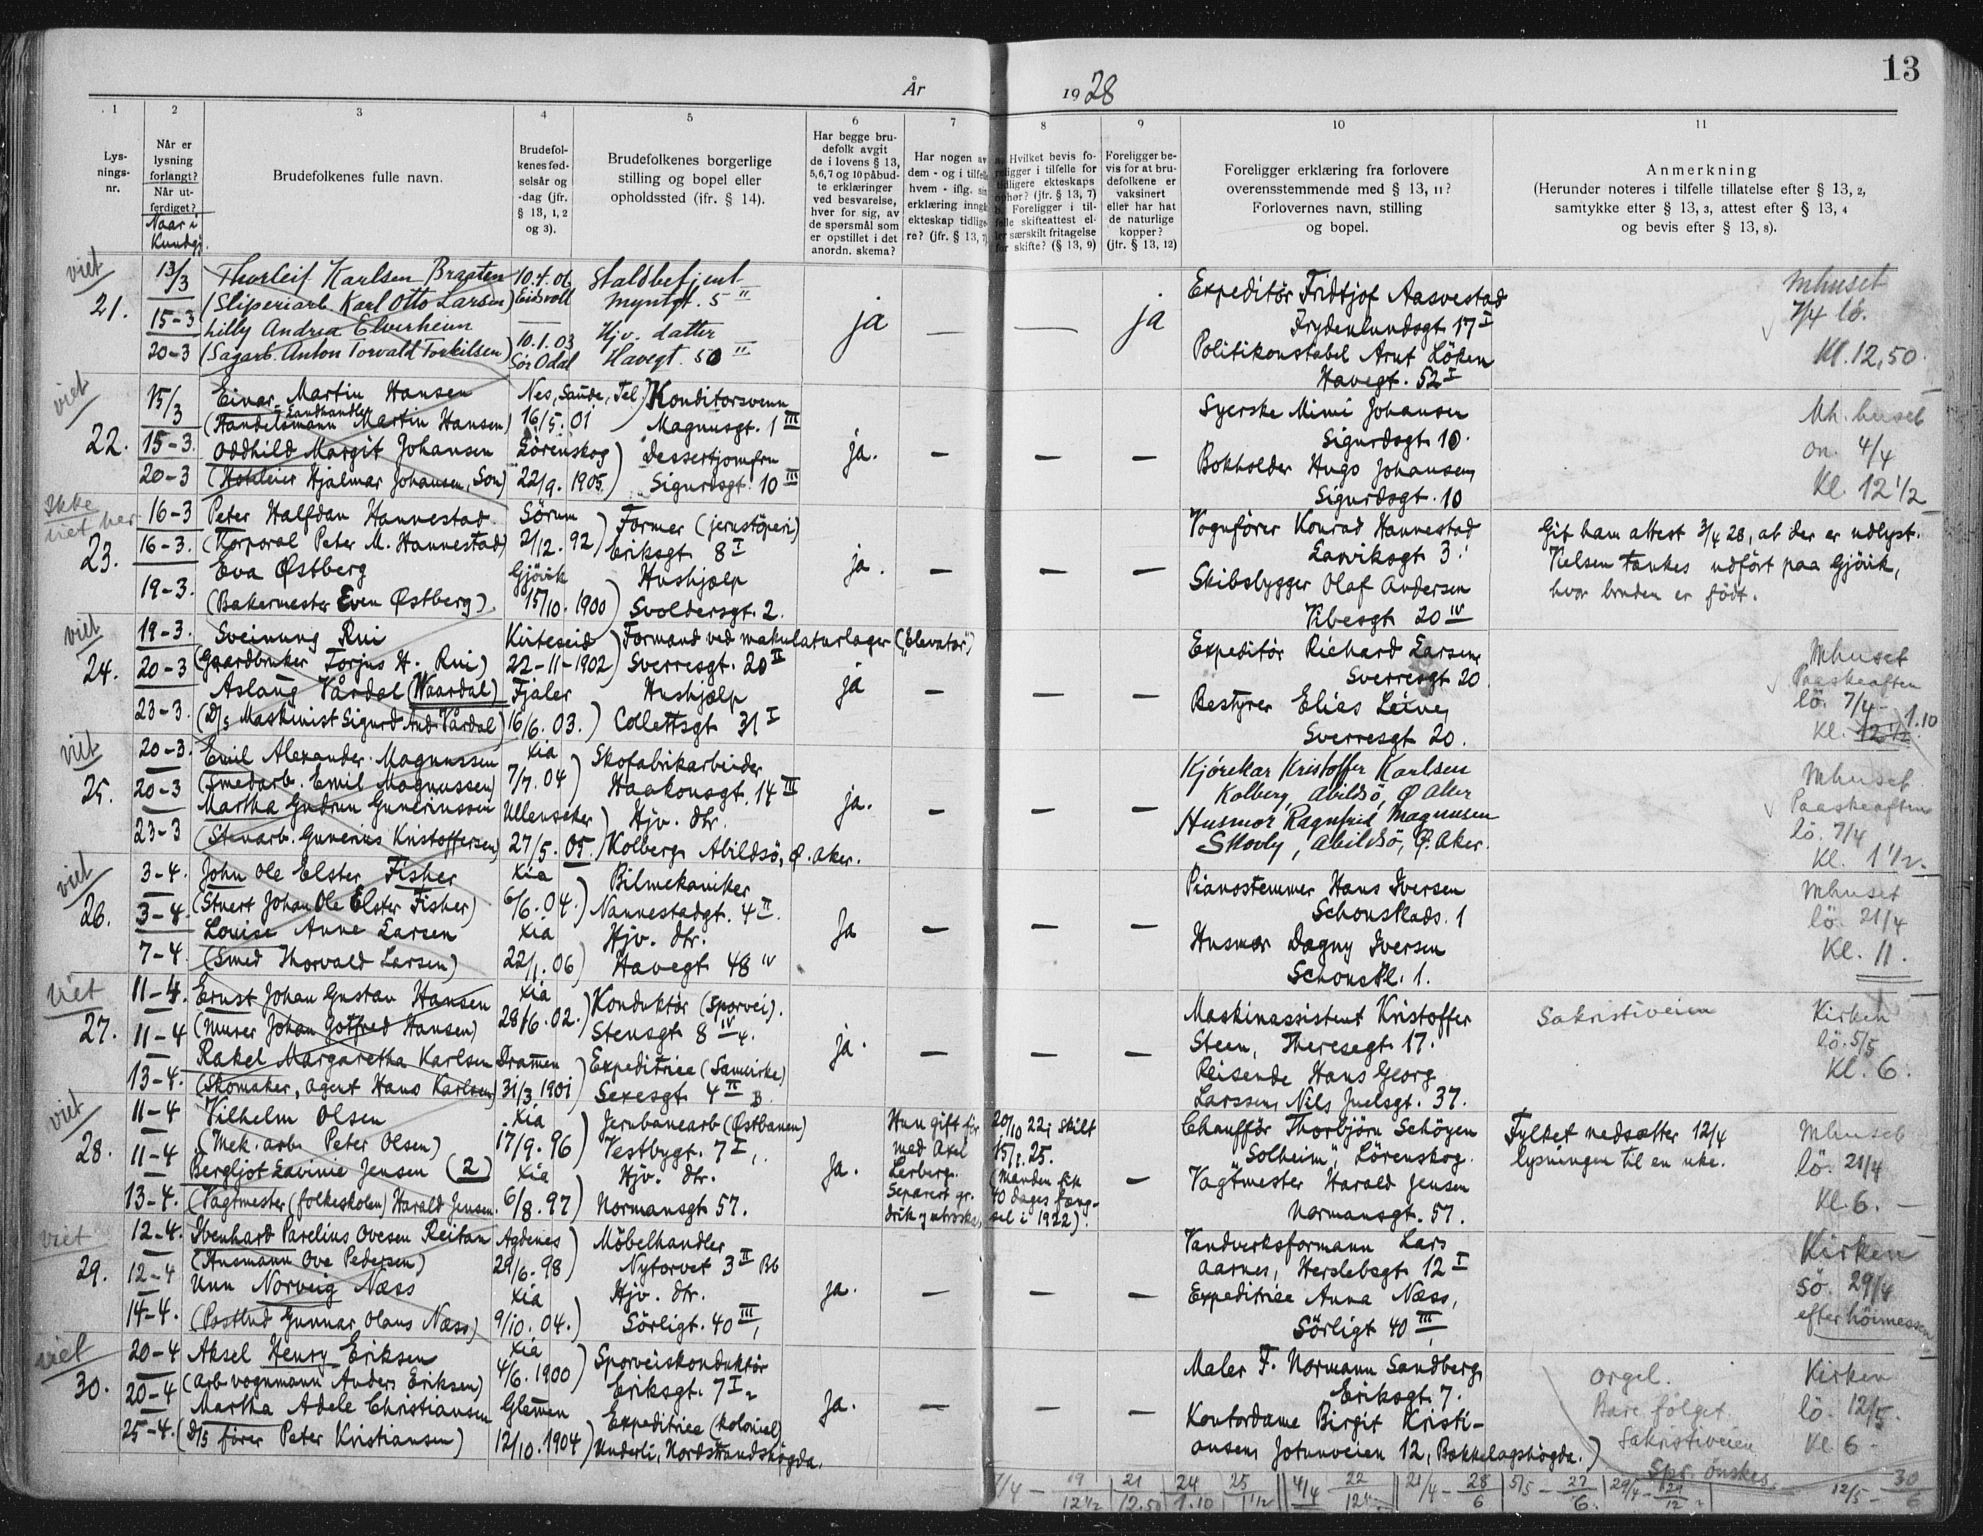 13
År 1928
1 2 3 4 5 6 7 8 9 10 11
Lys-
nings-
nr.
Når er
lysning
forlangt?
Når ut-
ferdiget?
Naar i
Kundgj.
Brudefolkenes fulle navn.
Brudefol-
kenes fød-
selsår og
-dag (jfr.
§ 13, 1, 2
og 3).
Brudefolkenes borgerlige
stilling og bopel eller
opholdssted (jfr. § 14).
Har begge bru-
defolk avgit
de i lovens § 13,
5, 6, 7 og 10 påbud-
te erklæringer
ved besvarelse,
hver for sig, av
de spørsmål som
er opstillet i det
anordn. skema?
Har nogen av
dem - og i tilfelle
hvem - iflg. sin
erklæring inngå
ekteskap tidlige-
re? (jfr. § 13, 7)
Hvilket bevis fo-
religger i tilfelle for
tidligere ekteskaps
ophør? (jfr. § 13, 7)
b. Foreligger i til-
felle skifteattest el-
ler særskilt fritagelse
for skifte? (§ 13, 9)
Foreligger be-
vis for at bru-
defolkene er
vaksinert
eller har hat
de naturlige
kopper?
(jfr. § 13, 12)
Foreligger erklæring fra forlovere
overensstemmende med § 13, 11?
Forlovernes navn, stilling
og bopel.
Anmerkning
(Herunder noteres i tilfelle tillatelse efter § 13, 2,
samtykke efter § 13, 3, attest efter § 13, 4
og bevis efter § 13, 8).
viet
21.
13/3
15-3
20-3
Thorleif Karlsen Braaten
(Sliperiarb. Karl Otto Larsen)
Lilly Andrea Elverheim
(Sagarb. Anton Torvald Torkilsen)
Eidsvoll
10.1.03
Sør Odal
Staldbetjent
Myntgt. 5 II
Hjv. datter
Havegt. 50 II
ja
—
—
ja
Expeditør Fridtjof Aasvestad
Frydenlundsgt 17 I
Politikonstabel Arnt Löken
Havegt. 52 I
Mhuset
7/4 lö.
Kl. 12,50.
viet
22.
15/3
15-3.
20-3
Einar Martin Hansen
Landhandler
(Handelsmann Martin Hansen)
Oddhild Margit Johansen
Hjalmar Johansen, Son)
Nes, Saude, Tel.
16/5. 01
Lörenskog
22/9. 1905
Konditorsvenn
Magnusgt. 1 III
Dessertjomfru
Sigurdsgt. 10 III
ja.
—
—
—
Syerske Mimi Johansen
Sigurdsgt 10.
Bokholder Hugo Johansen,
Sigurdsgt. 10
Mh. huset
on. 4/4
Kl. 12 1/2
Ikke
viet her
23.
16-3
16-3.
19-3.
Peter Halfdan Hannestad
(Korporal Peter M. Hannestad)
Eva Østberg
(Bakermester Even Østberg)
Sörum
2/12. 92
Gjövik
15/10. 1900
Former (jernstöperi)
Eriksgt. 8 I
Hushjælp
Svoldersgt. 2.
ja.
—
—
—
Vognförer Konrad Hannestad
Larviksgt 3.
Skibsbygger Olaf Andersen
Vibesgt 20 IV
Git ham attest 3/4 28, at der er udlyst.
Vielsen tænkes udfört paa Gjövik,
hvor bruden er födt.
viet
24.
19-3.
20-3
23-3.
Sveinung Rui
(Gaardbruker Torjus H. Rui)
Aslaug Vårdal (Waardal)
(D/s Maskinist Sigurd And. Vårdal)
Kviteseid
22-11-1902
Fjaler
16/6. 03.
Formand ved makulaturlager ("Elevator")
Sverresgt. 20 II
Hushjælp
Collettsgt 31 I
ja
—
—
—
Expeditör Richard Larsen,
Sverresgt 20.
Bestyrer Elias Leive,
Sverresgt 20.
Mhuset
Paaskeaften
lö. 7/4-
1.10
Kl. 12 1/2
viet
25.
20-3.
20-3
23-3
Emil Alexander Magnussen
(Smedarb. Emil Magnussen)
Martha Gudrun Gunerinssen
(Stenarb. Gunerius Kristoffersen)
Xia
7/7. 04
Ullensaker
27/5. 05.
Skofabrikarbeider
Haakonsgt. 14 III
Hjv. dtr.
Kolberg, Abildsö, Ø. Aker.
ja.
—
—
—
Kjörekar Kristoffer Karlsen
Kolberg, Abildsö, Ø Aker
Husmor Ragnhild Magnussen
Skovly, Abildsö, Ø. Aker.
Mhuset
Paaskeaften
lö. 7/4
Kl. 1 1/2.
viet
26.
3-4.
3-4
7-4.
John Ole Elster Fisher
(Stuert Johan Ole Elster Fisher)
Louise Anne Larsen
(Smed Thorvald Larsen)
Xia
6/6. 04.
Xia
22/1. 06
Bilmekaniker
Nannestadgt. 4 II.
Hjv. dtr.
Havegt. 48 IV
Ja
—
—
—
Pianostemmer Hans Iversen
Schouspl​ads. 1
Husmor Dagny Iversen
Schouspl. 1.
Mhuset
lö. 21/4
Kl. 11.
viet
27.
11-4.
11-4
13-4.
Ernst Johan Gustav Hansen
(Murer Johan Gotfred Hansen)
Rakel Margaretha Karlsen
(Skomaker, agent Hans Karlsen)
Xia
28/6. 02.
Drammen
31/3 1901
Konduktör (Sporvei).
Stensgt 8 IV
Expeditrice (Samvirke)
Sexesgt. 4 II B.
ja.
—
—
—
Maskinassistent Kristoffer
Steen, Theresegt 17.
Reisende Hans Georg
Larssen, Nils Juelsgt. 37.
Sakristiveien
Kirken
lö. 5/5
Kl. 6.
viet
28.
11-4
11-4
13-4.
Vilhelm Olsen
(Mek. arb. Peter Olsen)
Bergljot Lavinie Jensen (2)
(Vagtmester (folkeskolen) Harald Jensen.
Xia
17/9. 96
Xia
6/8. 97
Jernbanearb (Østbanen)
Vestbygt. 7 I,
Hjv. dtr.
Normansgt 57.
Ja.
Hun gift för
med Axel
Lerberg.
Separert gr.
drik, utroskap
20/10 22, skilt
25.
(Manden fik
40 dages fæng-
sel i 1922).
—
Chaufför Thorbjörn Schöyen
"Solheim", Lörenskog.
Vagtmester Harald Jensen
Normansgt. 57.
Fylket nedsætter 12/4
lysningen til en uke.
Mhuset
lö. 21/4
Kl. 6. —
viet
29.
12-4.
12-4
14-4.
Ibenhard Parelius Ovesen Reitan
(Husmann Ove Pedersen)
Unn Norveig Næss
(Postbud Gunnar Olaus Næss)
Agdenes
29/6. 98
Xia
9/10. 04.
Möbelhandler
Nytorvet 3 II Bb
Hjv. dtr.
Sörligt. 40 III,
ja.
—
—
—
Vandverksformann Lars
Aarnes, Herslebsgt. 12 I
Expeditrice Anna Næss,
Sörligt 40 III,
Kirken
Sö. 29/4
efter höimessen
viet
30.
20-4
20-4
25-4.
Aksel Henry Eriksen
(Arb vognmann Anders Eriksen)
Martha Adele Christiansen
(D/S förer Peter Kristiansen)
Xia
4/6. 1900
Glemmen
12/10. 1904
Sporveiskonduktör
Eriksgt. 7 I
Expeditrice (kolonial)
Underli, Nordstrandshögda.
Ja.
—
—
—
Maler F. Normann Sandberg,
Eriksgt. 7.
Kontordame Birgit Kristi-
ansen, Jotunveien 12, Bekkelagshögda.)
Orgel.
Bare fölget
Sakristiveien
Spr. önskes.
Kirken
lö. 12/5.
Kl 6 -
7/4 — 19/12 1/2 | 21/12.50 | 24/1.10 | 25/1 1/2 || 4/4 22/12 1/2 | 21/4 — 28/6 | 5/5 — 27/6. | 29/4 — | 12/5 — 30/6